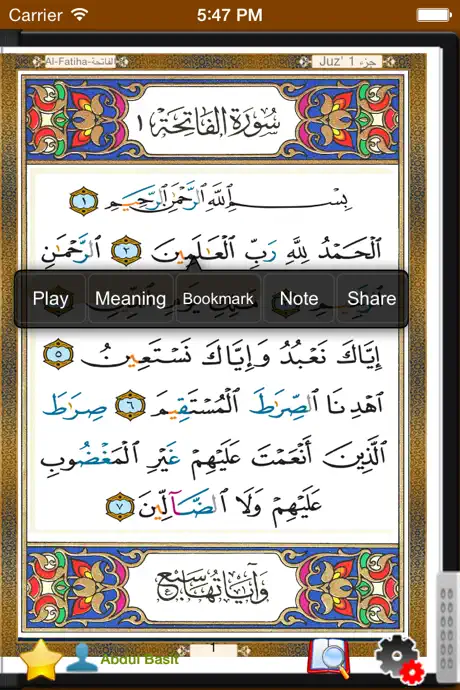 Carrier 5:47 PM
Al-Fatiha-الفاتحة Juz' 1 جزء
سُورَةُ الفَاتِحَة ١
بِسْمِ اللَّهِ الرَّحْمَٰنِ الرَّحِيمِ ١
الْحَمْدُ لِلَّهِ رَبِّ الْعَالَمِينَ ٢ الرَّحْمَٰنِ
Play Meaning Bookmark Note Share
٥ إِيَّاكَ نَعْبُدُ وَإِيَّاكَ نَسْتَعِينُ
اهْدِنَا الصِّرَاطَ الْمُسْتَقِيمَ ٦ صِرَاطَ
الَّذِينَ أَنْعَمْتَ عَلَيْهِمْ غَيْرِ الْمَغْضُوبِ
عَلَيْهِمْ وَلَا الضَّآلِّينَ ٧
وَآيَاتُهَا سَبْع
1
Abdul Basit